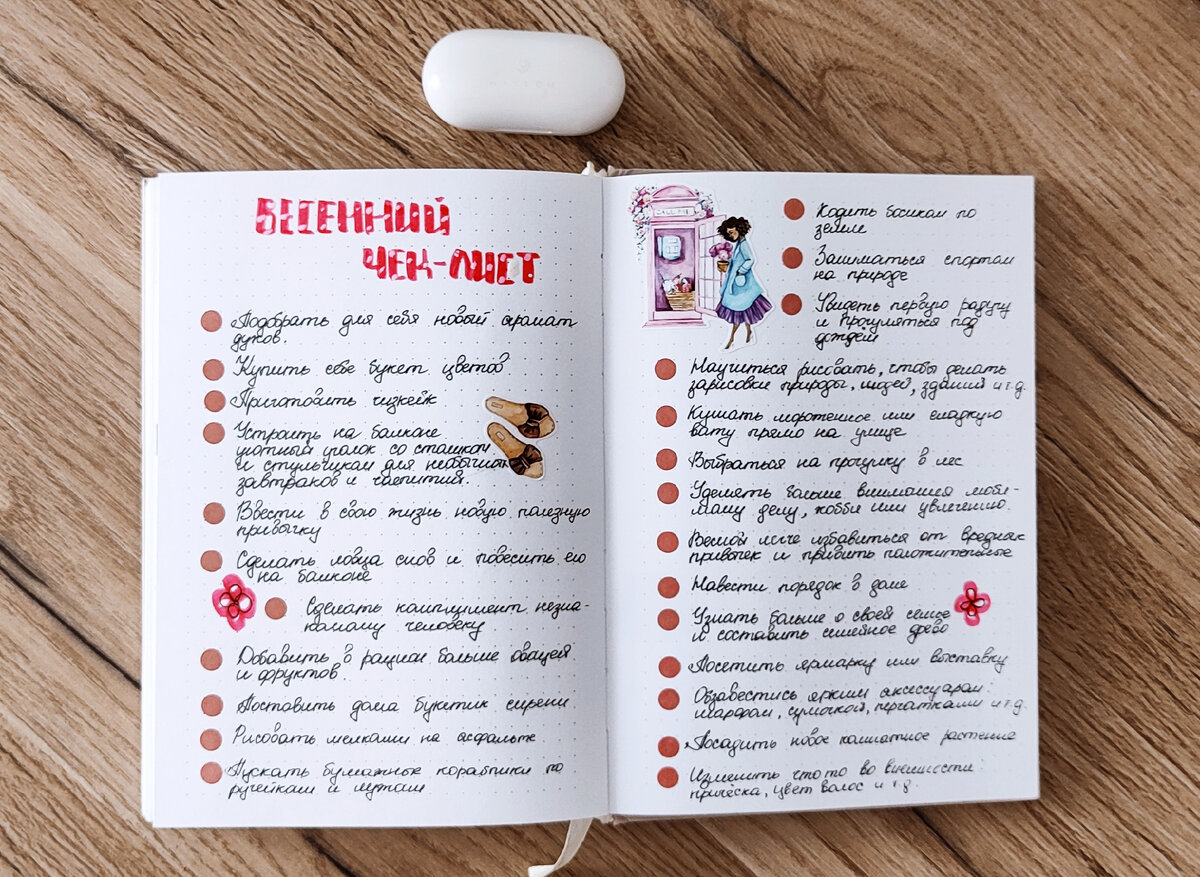 ВЕСЕННИЙ
ЧЕК-ЛИСТ
Подобрать для себя новый аромат
духов.
Купить себе букет цветов
Приготовить чизкейк
Устроить на балконе
уютный уголок со столиком
и стульчиком для необычных
завтраков и чаепитий.
Ввести в свою жизнь новую полезную
привычку
Сделать ловца снов и повесить его
на балконе
Сделать комплимент незна-
комому человеку
Добавить в рацион больше овощей
и фруктов.
Поставить дома букетик сирени.
Рисовать мелками на асфальте.
Пускать бумажные кораблики по
ручейкам и лужам
CALL ME
Ходить босиком по
земле
Заниматься спортом
на природе
Увидеть первую радугу
и прогуляться под
дождём
Научиться рисовать, чтобы делать
зарисовки природы, людей, зданий и т.д.
Кушать мороженное или сладкую
вату прямо на улице
Выбраться на прогулку в лес
Уделять больше внимания люби-
мому делу, хобби или увлечению.
Весной легче избавиться от вредных
привычек и привить положительные
Навести порядок в доме
Узнать больше о своей семье
и составить семейное древо
Посетить ярмарку или выставку
Обзавестись ярким аксессуаром:
шарфом, сумочкой, перчатками и т.д.
Посадить новое комнатное растение
Изменить что то во внешности:
причёска, цвет волос и т.д.